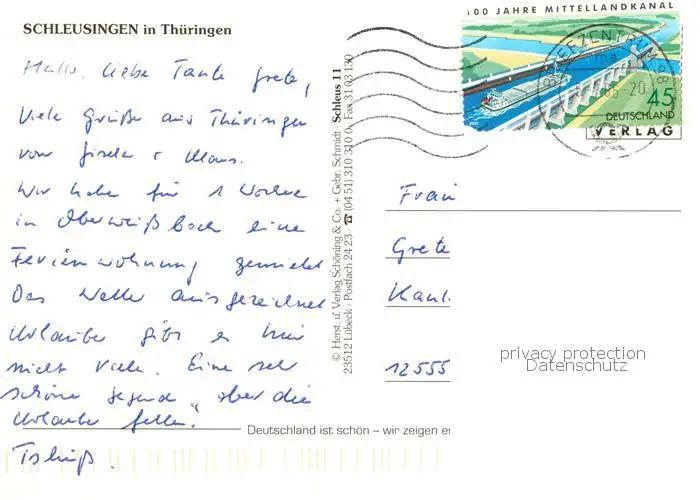 SCHLEUSINGEN in Thüringen
Hallo, liebe Tante Grete,
Viele Grüße aus Thüringen
von Gisela + Klaus.
Wir haben für 1 Woche
in Oberweißbach eine
Ferienwohnung gemietet
Das Wetter ausgezeichnet
Urlauber gibt es hier
nicht viele. Eine sehr
schöne Gegend, aber die
Urlauber fehlen.
Tschüß.
© Herst. u. Verlag Schöning & Co. + Gebr. Schmidt · Schleus 11
23512 Lübeck · Postfach 24 23 ☎ (04 51) 310 310 0, Fax 31 03 130
100 JAHRE MITTELLANDKANAL
BRIEFZENTRUM
45
DEUTSCHLAND
VERLAG
Frau
Grete
12555
privacy protection
Datenschutz
Deutschland ist schön – wir zeigen es